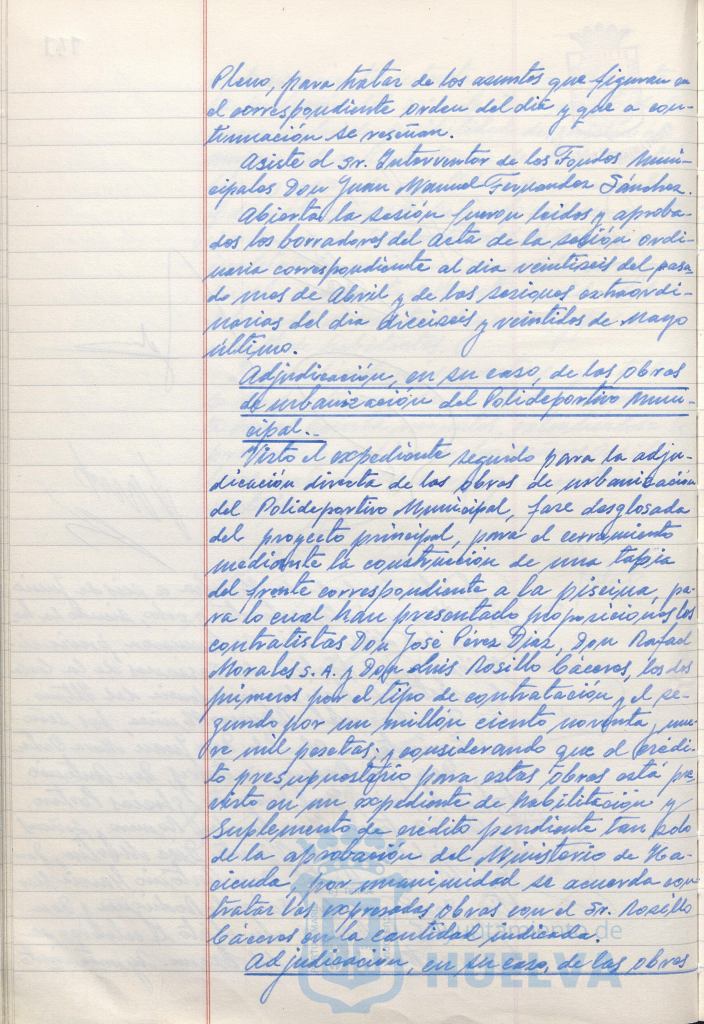 Pleno, para tratar de los asuntos que figuran en
el correspondiente orden del dia y que a con-
tinuación se reseñan.
Asiste el Sr. Interventor de los Fondos Muni-
cipales Don Juan Manuel Fernandez Sánchez.
Abierta la sesión fueron leidos y aproba-
dos los borradores del acta de la sesión ordi-
naria correspondiente al dia veintiseis del pasa-
do mes de Abril y de las sesiones extraordi-
narias del dia dieciseis y veintidos de Mayo
último.
Adjudicación, en su caso, de las obras
de urbanización del Polideportivo Muni-
cipal.-
Visto el expediente seguido para la adju-
dicación directa de las obras de urbanización
del Polideportivo Municipal, fase desglosada
del proyecto principal, para el cerramiento
mediante la construcción de una tapia
del frente correspondiente a la piscina, pa-
ra lo cual han presentado proposiciones los
contratistas Don José Pérez Diaz, Don Rafael
Morales S.A. y Don Luis Rosillo Cáceres, los dos
primeros por el tipo de contratación y el se-
gundo por un millón ciento noventa y nue-
ve mil pesetas; y considerando que el crédi-
to presupuestario para estas obras está pre-
visto en un expediente de Habilitación y
Suplemento de crédito pendiente tan solo
de la aprobación del Ministerio de Ha-
cienda, por unanimidad se acuerda con-
tratar las expresadas obras con el Sr. Rosillo
Cáceres en la cantidad indicada.
Adjudicación, en su caso, de las obras
Ayuntamiento de
HUELVA